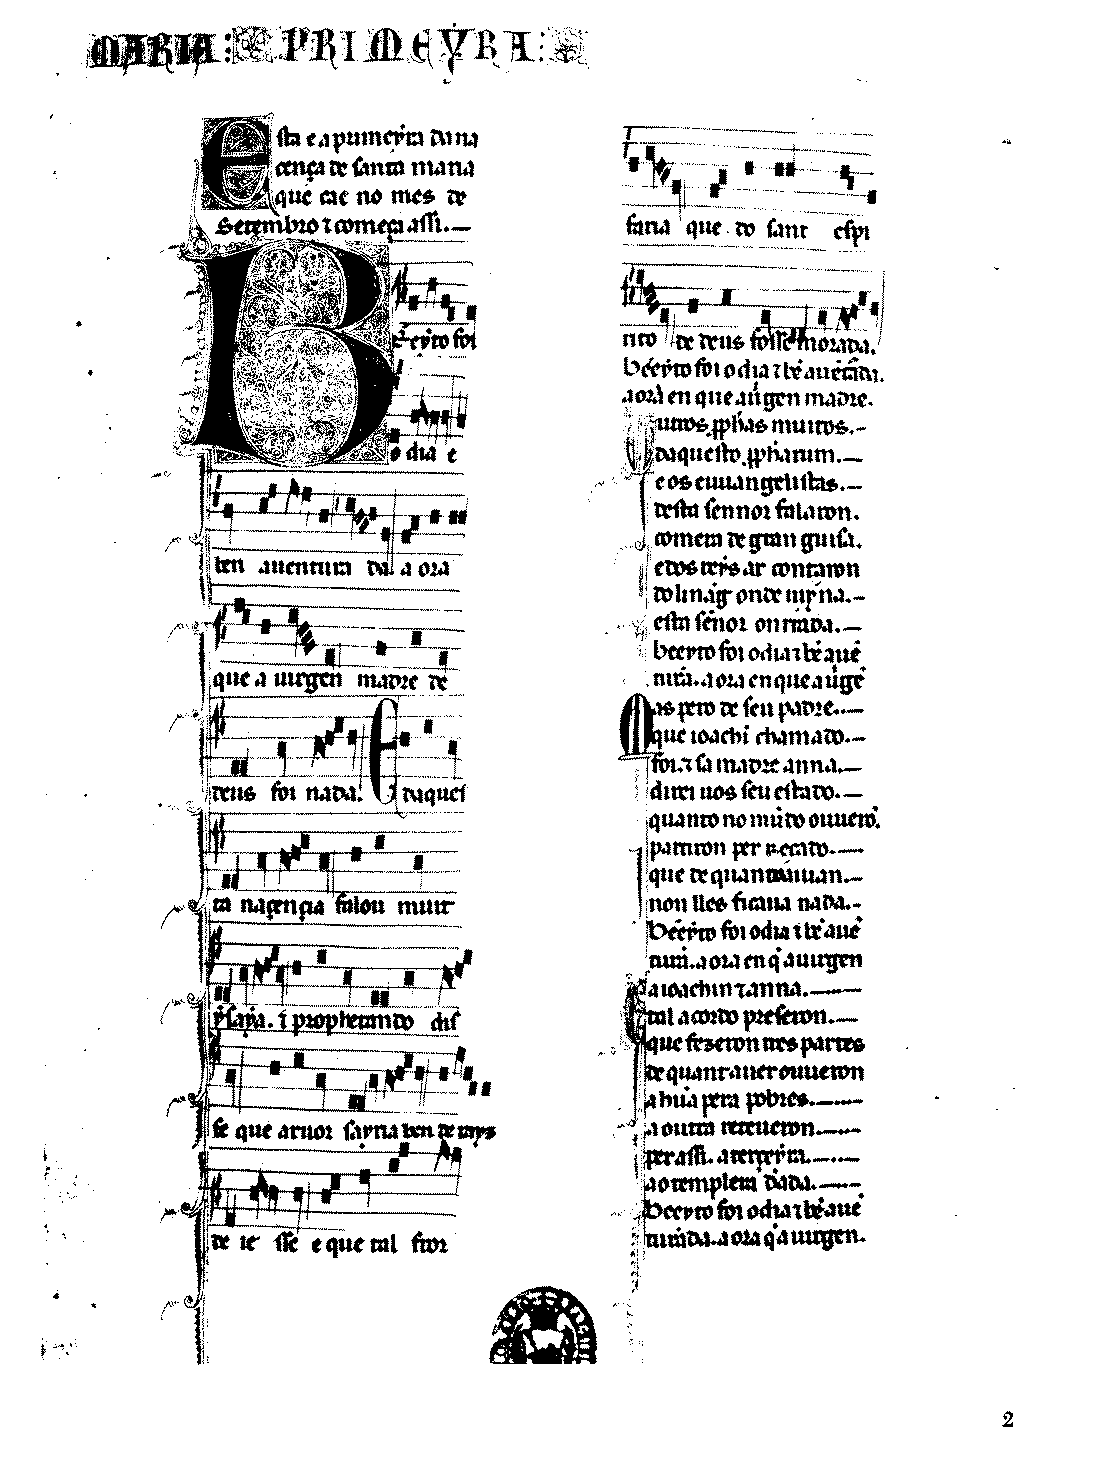 MARIA: PRIMEYRA:
Esta e a primeyra da na
cença de santa maria
que cae no mes de
Setembro ⁊ começa assi.—
Bẽeyto foi
o dia e
ben auentura da. a ora
que a uirgen madre de
deus foi nada. E daques
ta naçençia falou muit
ysaya. ⁊ prophetando dis
se que aruor sayria ben de rays
de ie sse e que tal fror
faria que do sant espi
rito de deus fosse morada.
Bẽeyto foi o dia ⁊ bẽ auẽtũda.
a ora en que a uirgen madre.
uitos pphas muitos.-
daquesto. ppharum.—
e os euuangelistas.—
desta sennor falaron.
comera de gran guisa.
e dos reys ar contaron
do linag̃ onde uĩyna.—
esta señor onrrada.—
beeyto foi o dia ⁊ bẽ auẽ
tura. a ora en que a uirgẽ
Mas pero de seu padre.—
que ioachĩ chamado.—
foi. ⁊ sa madre anna.—
direi uos seu estado.—
quanto no mũdo ouuerõ.
partiron per recado.—
que de quant auian.—
non lles ficaua nada.-
Bẽeyto foi o dia ⁊ bẽ auẽ
tura. a ora en q̃ a uirgen
a ioachin ⁊ anna.—
tal acordo preseron.—
que fezeron tres partes
de quant auer ouueron
a hũa pera pobres.—
a outra reteueron.—
per assi. a terçeyra.—
ao templera dada.—
Beeyto foi o dia ⁊ bẽ auẽ
turada. a ora q̃ a uirgen.
2